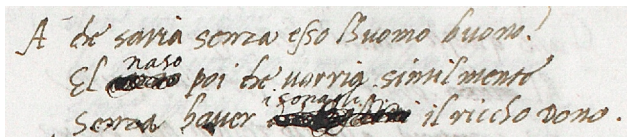 A che saria senza esso l'huomo buono?
El naso poi che varria similmente
Senza haver i sonagli il riccho dono.